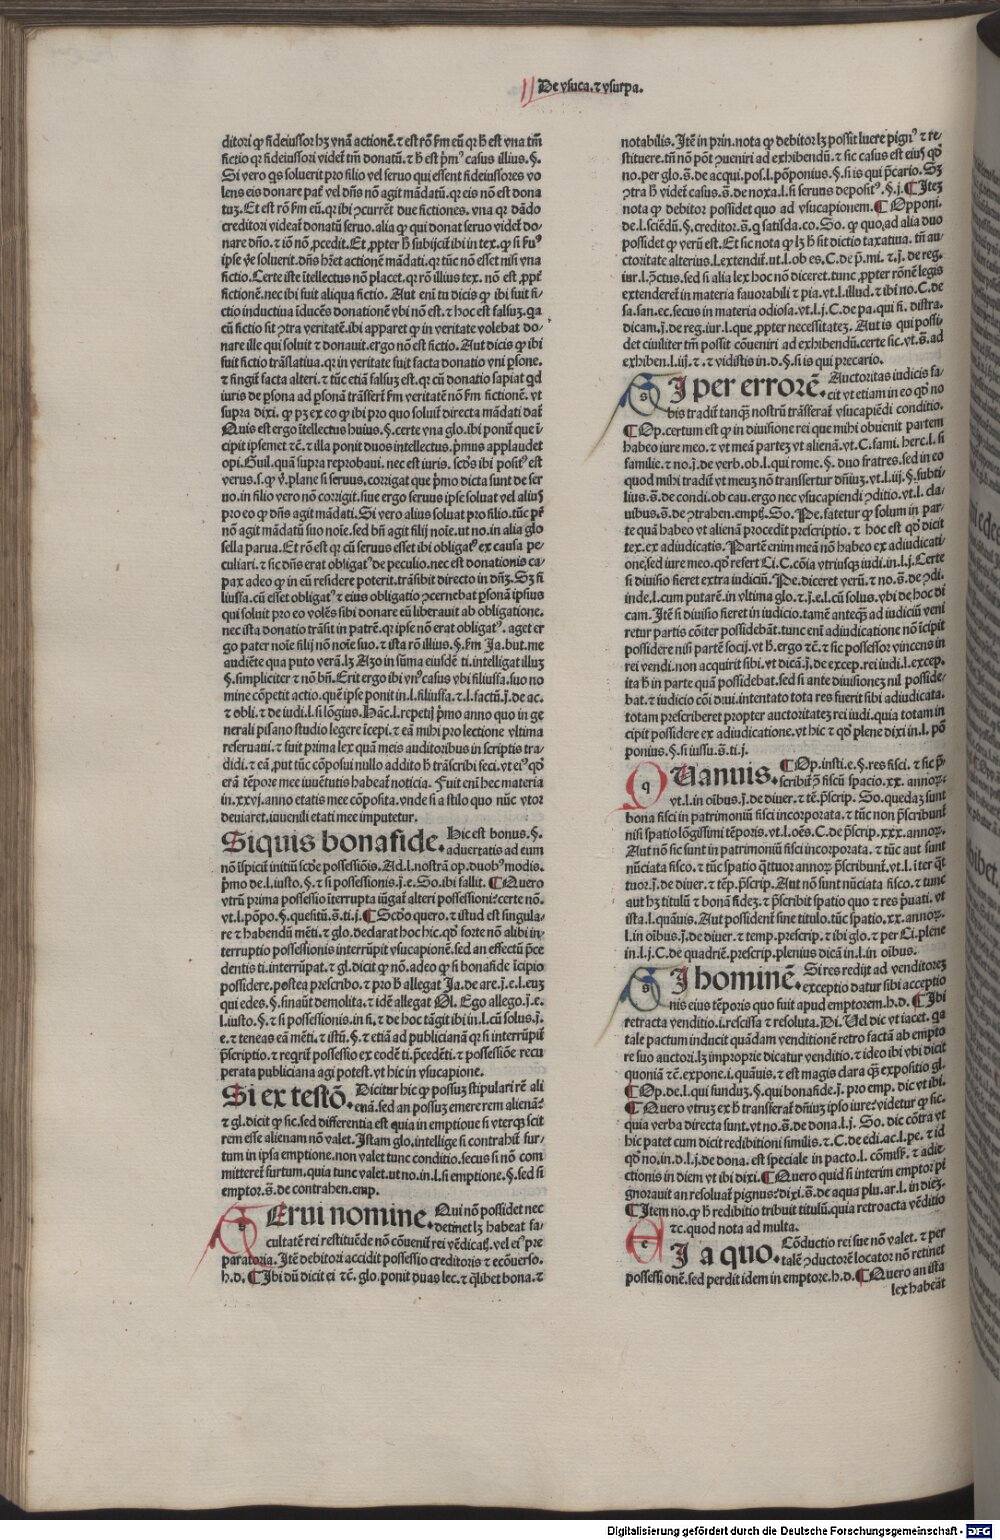 De vsuca. ⁊ vsurpa.
ditori qꝫ fideiussor hꝫ vnā actionē. ⁊ est rō fm eū qꝛ h̄ est vna tm̄
fictio qꝛ fideiussori videt͛ tm̄ donatū. ⁊ h̄ est p̄mꝰ casus illius. §.
Si vero qs soluerit pro filio vel seruo qui essent fideiussores vo
lens eis donare pat͛ vel dn̄s nō agit mādatū. qꝛ eis nō est dona
tuꝫ. Et est rō fm eū. qꝛ ibi ꝯcurrēt due fictiones. vna qꝛ dādo
creditori videat͛ donatū seruo. alia ꝙ qui donat seruo videt͛ do-
nare dn̄o. ⁊ iō nō ꝓcedit. Et ꝓpter h̄ subijciū ibi in tex. ꝙ si fuꝰ
ipse vē soluerit. dn̄s hr̄et actionē mādati. qꝛ tūc nō esset nisi vna
fictio. Certe iste ītellectus nō placet. qꝛ rō illius tex. nō est ꝓpt͛
fictionē. nec ibi fuit aliqua fictio. Aut enī tu dicis ꝙ ibi fuit fi-
ctio inductiua īducēs donationē vbi nō est. ⁊ hoc est falsuꝫ. qa
cū fictio sit ꝯtra veritatē. ibi apparet ꝙ in veritate volebat do-
nare ille qui soluit ⁊ donauit. ergo nō est fictio. Aut dicis ꝙ ibi
fuit fictio trāslatiua. qꝛ in veritate fuit facta donatio vni ꝑsone.
⁊ fingit͛ facta alteri. ⁊ tūc etiā falsuꝫ est. qꝛ cū donatio sapiat qd
iuris de ꝑsona ad ꝑsonā trāsferr̄ fm veritatē nō fm fictionē. vt
supra dixi. ꝙ pꝫ ex eo ꝙ ibi pro quo soluit͛ directa mādati dat͛
Quis est ergo ītellectus huius. §. certe vna glo. ibi ponit͛ que ī-
cipit ipsemet ⁊c̄. ⁊ illa ponit duos intellectus. p̄mus applaudet
opi. Guil. quā supra reprobaui. nec est iuris. scd̄s ibi positꝰ est
verus. s. ꝙ v̄. plane si seruus, corrigat que p̄mo dicta sunt de ser
uo. in filio vero nō corrigit. siue ergo seruus ipse soluat vel aliꝰ
pro eo ꝙ dn̄s agit mādati. Si vero alius soluat pro filio. tūc pr̄
nō agit mādatū suo noīe. sed bn̄ agit filij noīe. ut no. in alia glo
sella parua. Et rō est qꝛ cū seruus esset ibi obligatꝰ ex causa pe-
culiari. ⁊ sic dn̄s erat obligatꝰ de peculio. nec est donationis ca-
pax adeo ꝙ in eū residere poterit. trāsibit directo in dn̄ꝫ. Sꝫ fi
liussa. cū esset obligatꝰ ⁊ eius obligatio ꝯcernebat ꝑsonā ipsius
qui soluit pro eo volēs sibi donare eū liberauit ab obligatione.
nec ista donatio trāsit in patrē. qꝛ ipse nō erat obligatꝰ. aget er
go pater noīe filij nō noīe suo. ⁊ ista rō illius. §. fm Ja. but. me
audiēte qua puto verā. lꝫ Azo in sūma eiusdē ti. intelligat illuꝫ
§. simpliciter ⁊ nō bn̄. Erit ergo ibi vnꝰ casus vbi filiussa. suo no
mine cōpetit actio. quē ipse ponit in. l. filiussa. ⁊. l. factū. j. de ac.
⁊ obli. ⁊ de iudi. l. si lōgius. Hāc. l. repetij p̄mo anno quo in ge
nerali pisano studio legere īcepi. ⁊ eā mihi pro lectione vltima
reseruaui. ⁊ fuit prima lex quā meis auditoribus in scriptis tra-
didi. ⁊ eā, put tūc cōposui nullo addito h̄ trāscribi feci. vt eiꝰ qd̄
erā tēpore mee iuuētutis habeat͛ noticia. Fuit enī hec materia
in. xxvj. anno etatis mee cōposita. vnde si a stilo quo nūc vtor
deuiaret, iuuenili etati mee imputetur.
Siquis bonafide. Hic est bonus. §.
aduertatis ad eum
nō īspicit͛ initiū scd̄e possessiōis. Ad. l. nostrā op. duobꝰ modis.
p̄mo de. l. iusto. §. ⁊ si possessionis. j. e. So. ibi fallit. ¶ Quero
vtrū prima possessio īterrupta iūgat͛ alteri possessioni: certe nō.
vt. l. pōpo. §. quesitū. s̄. ti. j. ¶ Scd̄o quero. ⁊ istud est singula-
re ⁊ habendū mēti. ⁊ glo. declarat hoc hic. qd̄ forte nō alibi in-
terruptio possessionis interrūpit vsucapionē. sed an effectū p̄ce
dentis ti. interrūpat. ⁊ gl. dicit ꝙ nō. adeo ꝙ si bonafide īcipio
possidere, postea prescribo. ⁊ pro h̄ allegat Ja. de are. j. e. l. euꝫ
qui edes. §. sinaūt demolita. ⁊ idē allegat Ol. Ego allego. j. e.
l. iusto. §. ⁊ si possessionis. in fi. ⁊ de hoc tāgit ibi in. l. cū solus. j.
e. ⁊ teneas eā mēti. ⁊ istū. §. ⁊ etiā ad publicianā qꝛ si interrūpit͛
p̄scriptio. ⁊ reqrit͛ possessio ex eodē ti. p̄cedēti. ⁊ possessiōe recu
perata publiciana agi potest. vt hic in vsucapione.
Si ex testō. Dicitur hic ꝙ possuꝫ stipulari rē ali
enā. sed an possuꝫ emere rem alienā:
⁊ gl. dicit ꝙ sic. sed differentia est quia in emptione si vterqꝫ scit
rem esse alienam nō valet. Istam glo. intellige si contrahit͛ fur-
tum in ipsa emptione. non valet tunc conditio. secus si nō com
mitteret͛ furtum. quia tunc valet. ut no. in. l. si emptione. §. sed si
emptor. s̄. de contrahen. emp.
Serui nomine. Qui nō possidet nec
detinet lꝫ habeat fa-
cultatē rei restituēde nō cōuenit͛ rei vēdicatꝭ. vel eiꝰ pre
paratoria. Itē debitori accidit possessio creditoris ⁊ ecōuerso.
h. d. ¶ Ibi dū dicit ei ⁊c̄. glo. ponit duas lec. ⁊ qlibet bona. ⁊
notabilis. Itē in prin. nota ꝙ debitor lꝫ possit luere pignꝰ ⁊ re-
stituere. tn̄ nō pōt ꝯueniri ad exhibendū. ⁊ sic casus est eiꝰ qd̄
no. per glo. s̄. de acqui. pos. l. pōponius. §. si is qui p̄cario. Sꝫ
ꝯtra h̄ videt͛ casus. s̄. de noxa. l. si seruus depositꝰ. §. j. ¶ Iteꝫ
nota ꝙ debitor possidet quo ad vsucapionem. ¶ Opponi.
de. l. sciēdū. §. creditor. s̄. q satisda. co. So. ꝙ quo, ad alia duo
possidet ꝙ verū est. Et sic nota ꝙ lꝫ h̄ sit dictio taxatiua. tn̄ au-
ctoritate alterius. l. extendit͛. ut. l. ob es. C. de p̄. mi. ⁊. j. de reg.
iur. l. ꝯctus. sed si alia lex hoc nō diceret. tunc ꝓpter rōnē legis
extenderet͛ in materia fauorabili ⁊ pia. vt. l. illud. ⁊ ibi no. C. de
sa. san. ec. secus in materia odiosa. vt. l. j. C. de pa. qui fi. distra.
dicam. j. de reg. iur. l. que ꝓpter necessitateꝫ. Aut is qui possi-
det ciuiliter tm̄ possit cōueniri ad exhibendū. certe sic. vt. s̄. ad
exhiben. l. iij. ⁊. ⁊ vidistis in. d. §. si is qui precario.
SI per errorē. Auctoritas iudicis fa-
cit vt etiam in eo qd̄ no
bis tradit͛ tanqꝫ nostrū trāsferat͛ vsucapiēdi conditio.
¶ Op. certum est ꝙ in diuisione rei que mihi obuenit partem
habeo iure meo. ⁊ vt meā parteꝫ vt alienā. vt. C. fami. herc. l. si
familie. ⁊ no. j. de verb. ob. l. qui rome. §. duo fratres. sed in eo
quod mihi tradit͛ vt meuꝫ nō transsertur dn̄iuꝫ. vt. l. iij. §. subti-
lius. s̄. de condi. ob cau. ergo nec vsucapiendi ꝯditio. vt. l. cla-
uibus. s̄. de ꝯtrahen. emptꝭ. So. Pe. fatetur ꝙ solum in par-
te quā habeo vt alienā procedit prescriptio. ⁊ hoc est qd̄ dicit
tex. ex adiudicatis. Partē enim meā nō habeo ex adiudicati-
one, sed iure meo. qd̄ resert Ci. C. cōia vtriusqꝫ iudi. in. l. j. Certe
si diuisio fieret extra iudiciū. Pe. diceret verū. ⁊ no. s̄. de ꝯdi.
inde. l. cum putarē. in vltima glo. ⁊. j. e. l. cū solus. vbi de hoc di
cam. Itē si diuisio fieret in iudicio. tamē anteqꝫ ad iudiciū veni
retur partis cōiter possidebāt. tunc enī adiudicatione nō īcipit
possidere nisi partē socij. vt h̄. ergo ⁊c̄. ⁊ sic possessor vincens in
rei vendi. non acquirit sibi. vt dicā. j. de excep. rei iudi. l. excep.
ita h̄ in parte quā possidebat. sed si ante diuisioneꝫ nil posside-
bat. ⁊ iudicio cōi diui. intentato tota res fuerit sibi adiudicata.
totam prescriberet propter auctoritateꝫ rei iudi. quia totam in
cipit possidere ex adiudicatione. vt hic ⁊ qd̄ plene dixi in. l. pō
ponius. §. si iussu. s̄. ti. j.
QUamuis. ¶ Op. insti. e. §. res fisci. ⁊ sic p̄-
scribit͛ ꝯ fiscū spacio. xx. annoꝝ.
vt. l. in oībus. j. de diuer. ⁊ tē. p̄scrip. So. quedaꝫ sunt
bona fisci in patrimoniū fisci incorporata. ⁊ tūc non p̄scribunt͛
nisi spatio lōgissimi tēporis. vt. l. oēs. C. de p̄scrip. xxx. annoꝝ.
Aut nō sic sunt in patrimoniū fisci incorporata. ⁊ tūc aut sunt
nūciata fisco. ⁊ tūc spatio qttuor annoꝝ p̄scribunt͛. vt. l. iter qt
tuor. j. de diuer. ⁊ tēp. p̄scrip. Aut nō sunt nūciata fisco. ⁊ tunc
aut hꝫ titulū ⁊ bonā fideꝫ. ⁊ p̄scribit spatio quo ⁊ res p̄uati. vt
ista. l. quāuis. Aut possident͛ sine titulo. tūc spatio. xx. annoꝝ.
l. in oībus. j. de diuer. ⁊ temp. prescrip. ⁊ ibi glo. ⁊ per Ci. plene
in. l. j. C. de quadriē. prescrip. plenius dicā in. l. in oībus.
SI hominē. Si res redijt ad venditoreꝫ
exceptio datur sibi acceptio
nis eius tēporis quo fuit apud emptorem. h. d. ¶ Ibi
retracta venditio. i. rescissa ⁊ resoluta. Di. Uel dic vt iacet. qa
tale pactum inducit quādam venditionē retro factā ab empto
re suo auctori. lꝫ improprie dicatur venditio. ⁊ ideo ibi vbi dicit
quoniā ⁊c̄. expone. i. quāuis. ⁊ est magis clara qꝫ expositio gl.
¶ Op. de. l. qui funduꝫ. §. qui bonafide. j. pro emp. dic vt ibi.
¶ Quero vtruꝫ ex h̄ transferat͛ dn̄iuꝫ ipso iure: videtur ꝙ sic.
quia verba directa sunt. vt no. s̄. de dona. l. j. So. dic cōtra vt
hic patet cum dicit redibitioni similis. ⁊. C. de edi. ac. l. pe. ⁊ id
qd̄ no. in. d. l. j. de dona. est speciale in pacto. l. cōmiss͛. ⁊ adie-
ctionis in diem vt ibi dixi. ¶ Quero quid si interim emptor pi
gnorauit an resoluat͛ pignus: dixi. s̄. de aqua plu. ar. l. in dieꝫ.
¶ Item no. ꝙ h̄ redibitio tribuit titulū. quia retroacta vēditio
⁊c. quod nota ad multa.
SI a quo. Cōductio rei sue nō valet. ⁊ per
talē ꝯductorē locator nō retinet
possessionē. sed perdit idem in emptore. h. d. ¶ Quero an ista
lex habeāt
Digitalisierung gefördert durch die Deutsche Forschungsgemeinschaft - DFG